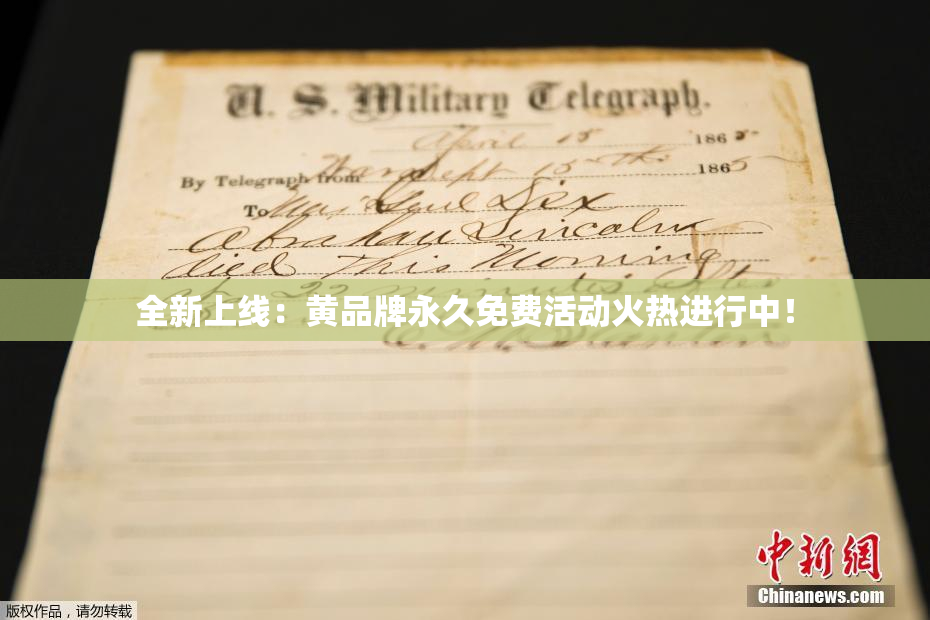 U. S. Military Telegraph.
April 15 1865
By Telegraph from War Dept 15th 1865
To Maj Genl Dix
Abraham Lincoln
died This Morning
at 22 minutes after
全新上线：黄品牌永久免费活动火热进行中！
E. M. Stanton
中新网
Chinanews.com
版权作品，请勿转载